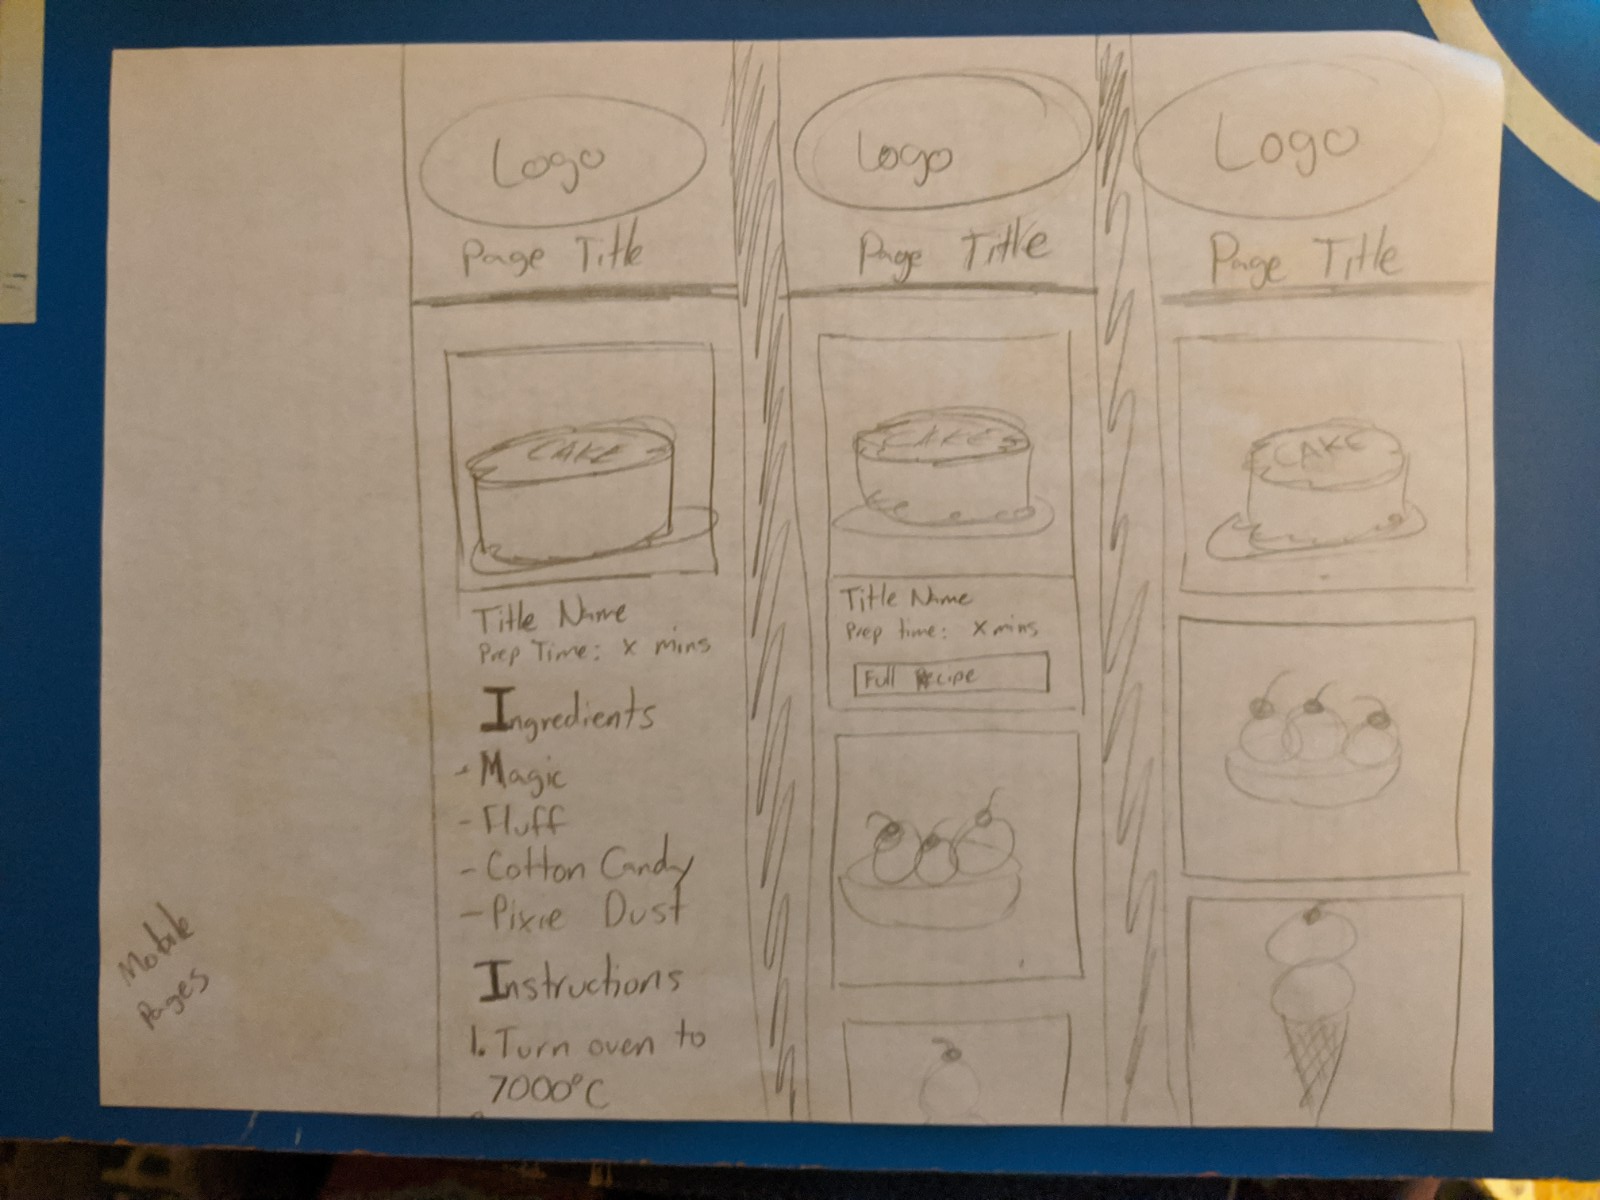 Logo
Page Title
CAKE
Title Name
Prep Time: x mins
Ingredients
- Magic
- Fluff
- Cotton Candy
- Pixie Dust
Instructions
1. Turn oven to
7000°C
Logo
Page Title
CAKE
Title Name
Prep time: x mins
Full Recipe
Logo
Page Title
CAKE
Mobile
Pages